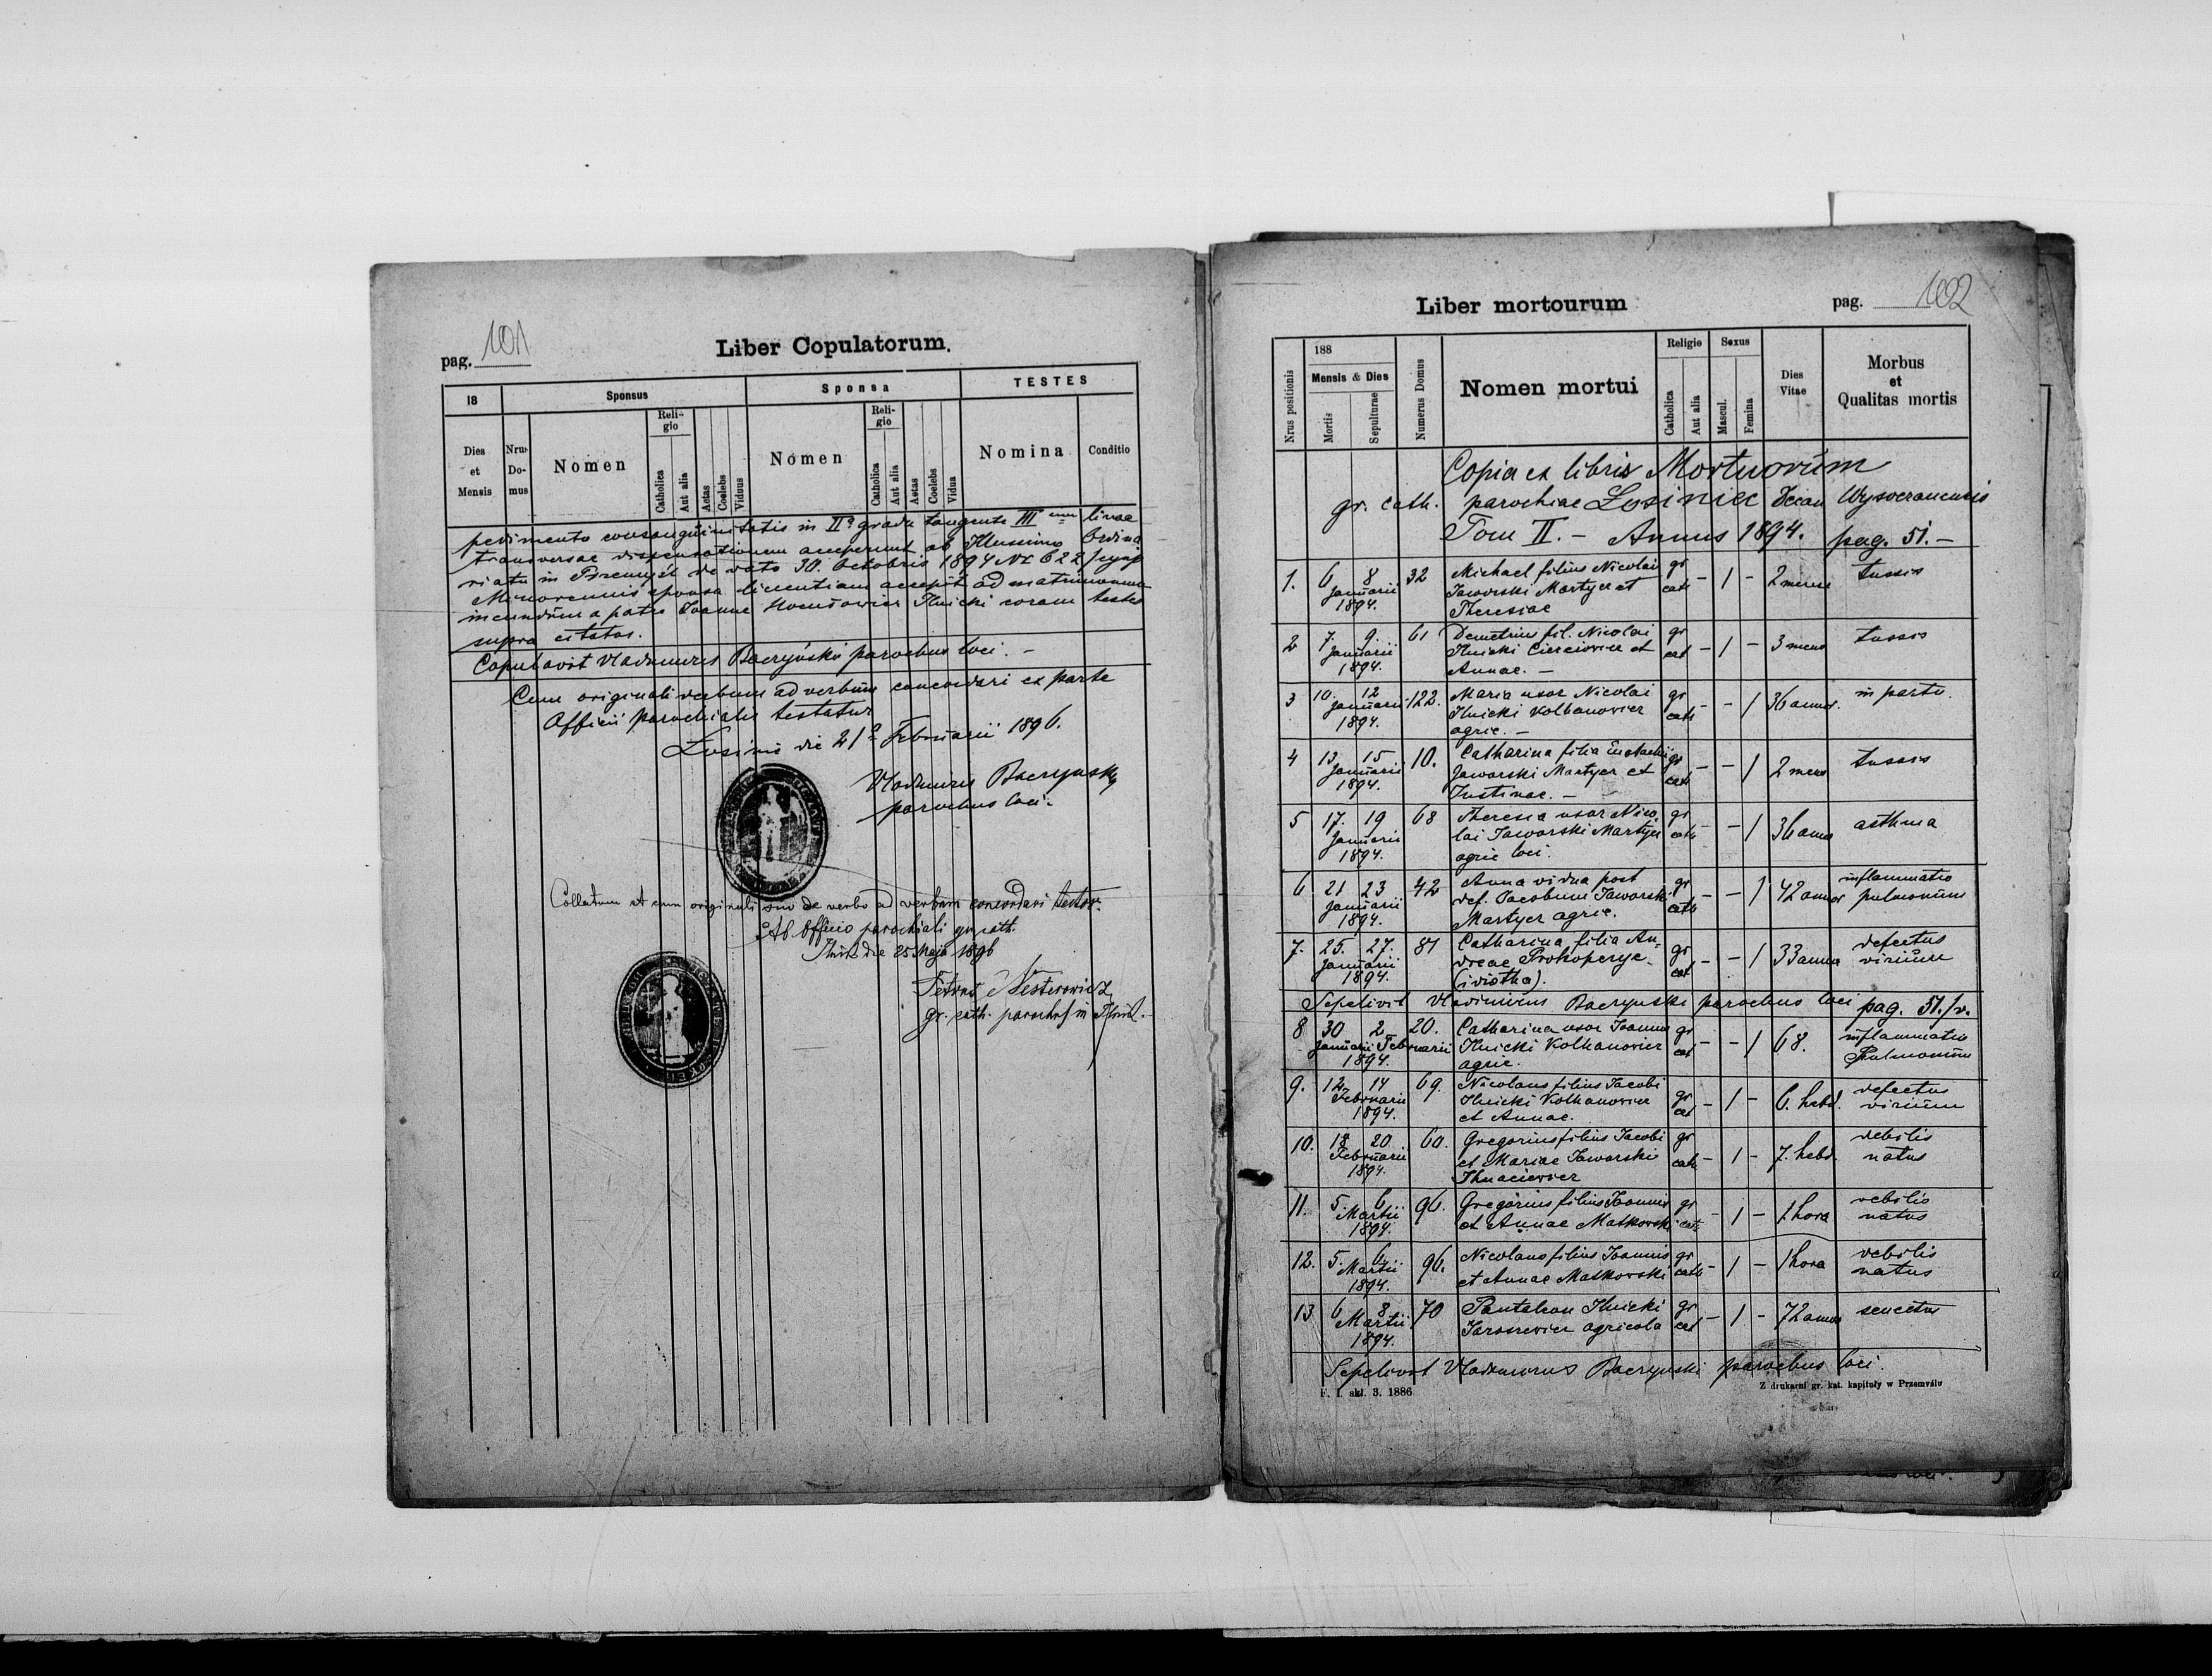 pag. 101
Liber Copulatorum.
18 Sponsus Sponsa TESTES
Dies et Mensis Nrus Domus Nomen Religio Catholica Aut alia Aetas Coelebs Viduus Nomen Religio Catholica Aut alia Aetas Coelebs Vidua Nomina Conditio
pedimento consanguinitatis in II° gradu tangente III linae
transversae dispensationem acceperunt ab Illussimo Ordina
riatu in Przemyśl de dato 30. Octobris 1894 Nr 622
Minorennis sponsa licentiam accepit ad matrimonium
ineundum a patre Joanne Ilnicki coram testes
supra citatos.
Copulavit Vladimirus Baczyński parochus loci. –
Cum originali verbum ad verbum concordari ex parte
Officii parochialis testatur
Losiniec die 21° Februarii 1896.
Vladimirus Baczynski
parochus loci.
Collatum et cum originali suo de verbo ad verbum concordari testor.
Ab officio parochiali gr. cath.
Ilnik die 25 Maja 1896
Petrus Nesterowicz
gr. cath. parochus in Ilnik.
Liber mortourum
pag. 102
Nrus positionis 188 Mensis & Dies Mortis Sepulturae Numerus Domus Nomen mortui Religio Catholica Aut alia Sexus Mascul. Femina Dies Vitae Morbus et Qualitas mortis
Copia ex libris Mortuorum
gr. cath. parochiae Losiniec Decan Wysoczanensis
Tom II. – Annus 1894. pag. 51. –
1. 6 8 32 Michael filius Nicolai gr – 1 – 2 mense tussis
Januarii Jaworski Martycz et cath
1894. Theresiae
2 7. 9. 61 Demetrius fil. Nicolai gr – 1 – 3 mens tussis
Januarii Ilnicki Cierciowicz et cat
1894. Annae. –
3 10. 12 122. Maria uxor Nicolai gr – – 1 36 annor. in partu.
Januarii Ilnicki Kolhanowicz cath
1894. agric. –
4 13 15 10. Catharina filia Eustachii gr – – 1 2 mens tussis
Januarii Jaworski Martycz et cath
1894. Justinae. –
5 17. 19 68 Theresia uxor Nico gr – – 1 36 anno asthma
Januarii lai Jaworski Martycz cath
1894. agric loci.
6 21 23 42 Anna vidua post gr – – 1 42 annor inflammatio
Januarii def. Jacobum Jaworski cath pulmonum
1894. Martycz agric.
7. 25. 27. 81 Catharina filia An- gr – – 1 33 annor defectus
Januarii dreae Prokoperyc cat virium
1894. (idiotha).
Sepelivit Vladimirus Baczynski parochus loci pag. 51./v.
8 30 2 20. Catharina uxor Joannis gr – – 1 68. inflammatio
Januarii Februarii Ilnicki Kolhanowicz cat Pulmonum
1894. agric.
9. 12 14 69. Nicolaus filius Jacobi gr – 1 – 6. hebd. defectus
Februarii Ilnicki Kolhanowicz cat virium
1894. et Annae.
10. 18 20 60. Gregorius filius Jacobi gr – 1 – 7. hebd. debilis
Februarii et Mariae Jaworski cath natus
1894. Ihnaciewicz
11. 5. 6 96. Gregorius filius Joannis gr – 1 – 1 hora debilis
Martii et Annae Matkowski cath natus
1894.
12. 5. 6 96. Nicolaus filius Joannis gr – 1 – 1 hora debilis
Martii et Annae Matkowski cath natus
1894.
13 6 8 70 Pantaleon Ilnicki gr – 1 – 72 annor senectus
Martii Jarosiewicz agricola cat
1894.
Sepelivit Vladimirus Baczynski parochus loci.
F. I. skł. 3. 1886 Z drukarni gr. kat. kapituły w Przemyślu